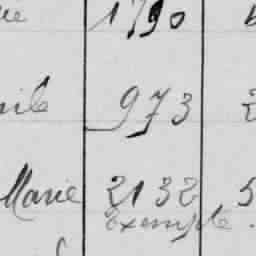 1790
973
Marie 2132 5
Exemple.